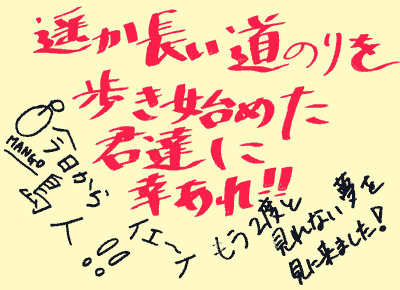 遥か長い道のりを
歩き始めた
君達に
幸あれ!!
今日から
MANGO
島人!!
イエ〜イ
もう2度と
見れない夢を
見に来ました!